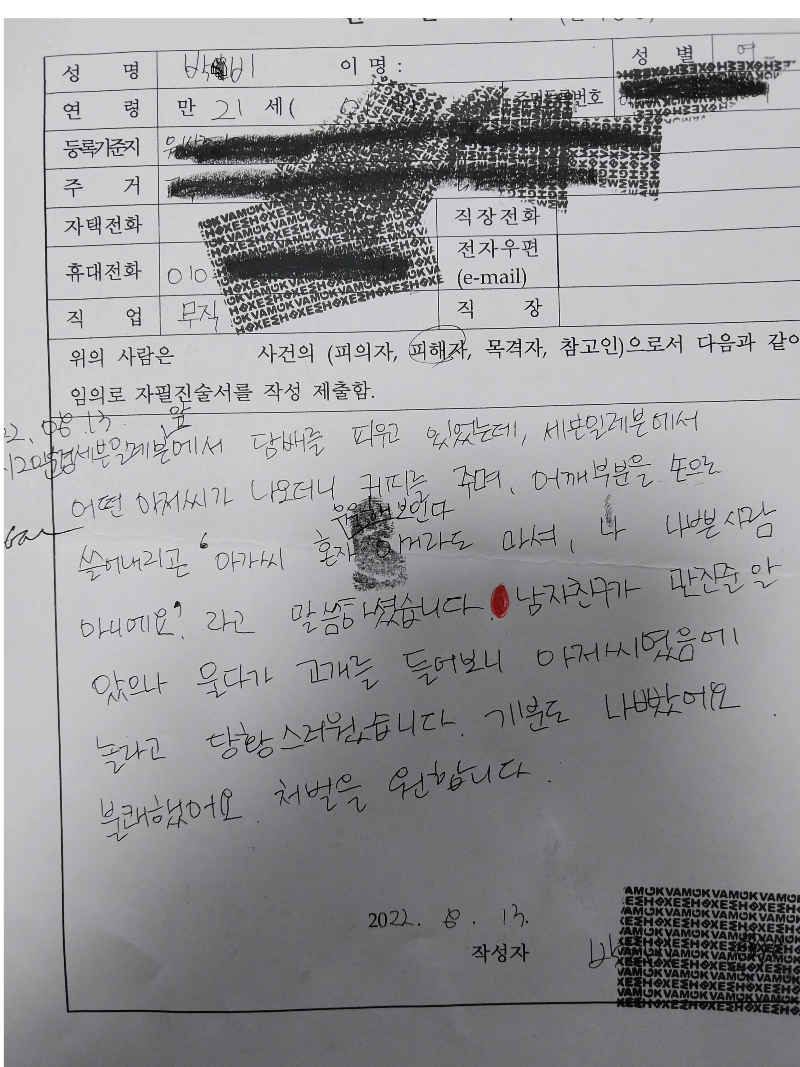 성 명 이 명 : 성 별 여
연 령 만 21 세( 주민등록번호
등록기준지
주 거
자택전화 직장전화
휴대전화 010 전자우편
(e-mail)
직 업 무직 직 장
위의 사람은 사건의 (피의자, 피해자, 목격자, 참고인)으로서 다음과 같이
임의로 자필진술서를 작성 제출함.
22. 08. 13. 앞
세븐일레븐에서 담배를 피우고 있었는데, 세븐일레븐에서
어떤 아저씨가 나오더니 커피를 주며, 어깨부분을 손으로
우울해보인다
쓸어내리곤 "아가씨 혼자 이거라도 마셔, 나 나쁜사람
아니에요" 라고 말씀하셨습니다. 남자친구가 만진줄 알
았으나 울다가 고개를 들어보니 아저씨였음에
놀라고 당황스러웠습니다. 기분도 나빴어요.
불쾌했어요. 처벌을 원합니다.
2022. 8. 13.
작성자 박